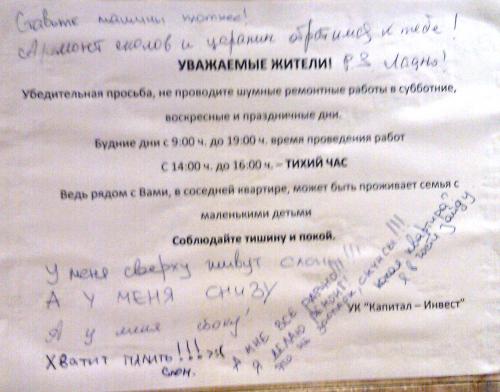 Ставьте машины плотнее!
А ремонт сколов и царапин обратимся к тебе!
УВАЖАЕМЫЕ ЖИТЕЛИ! P.S Ладно!
Убедительная просьба, не проводите шумные ремонтные работы в субботние,
воскресные и праздничные дни.
Будние дни с 9:00 ч. до 19:00 ч. время проведения работ
С 14:00 ч. до 16:00 ч. – ТИХИЙ ЧАС
Ведь рядом с Вами, в соседней квартире, может быть проживает семья с
маленькими детьми
Соблюдайте тишину и покой.
У меня сверху живут слоны!!!
А У МЕНЯ СНИЗУ
А у меня сбоку!
ХВАТИТ ПАЛИТЬ!!!
Слон.
А МНЕ ВСЕ РАВНО!!!
Я ДЕЛАЮ РЕМОНТ!
это не зоопарк, скунсы!!!
какая квартира?
Я в гости зайду
УК "Капитал – Инвест"